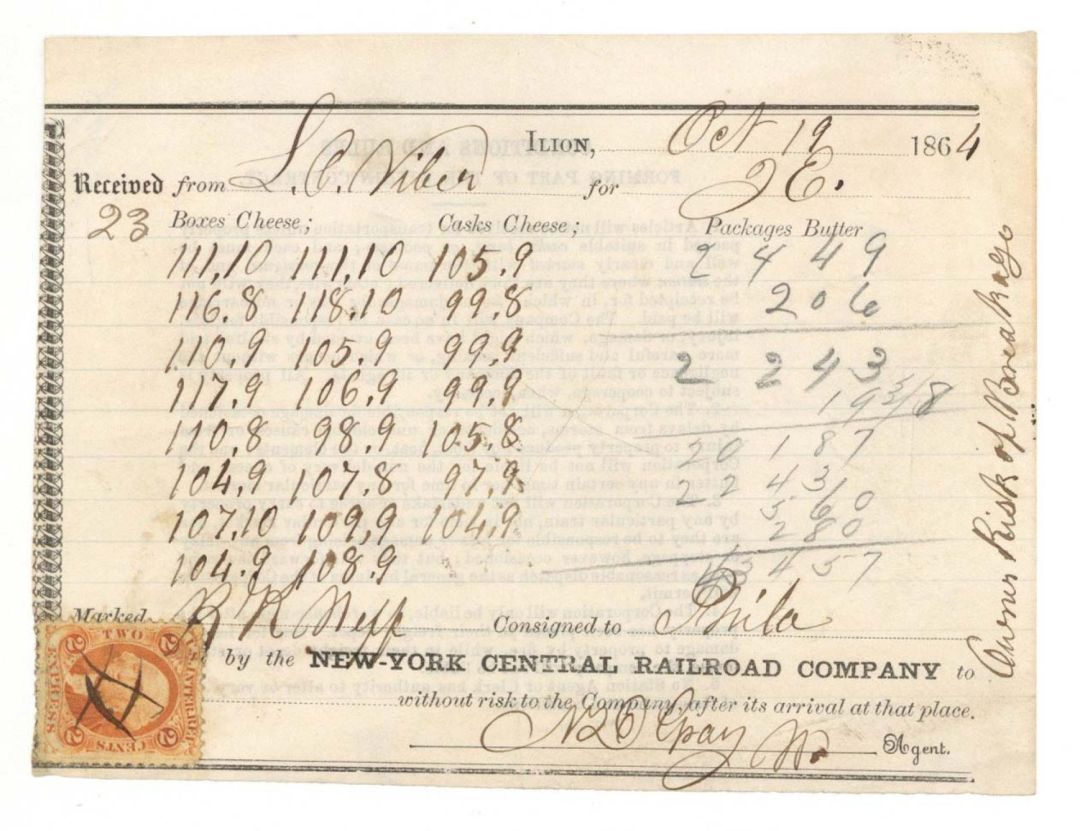 ILION, Oct 19 1864
Received from L. C. Viber for J E.
23 Boxes Cheese; Casks Cheese; Packages Butter
111.10 111.10 105.9 2 4 4 9
116.8 118.10 99.8 2 0 6
110.9 105.9 99.9 2 2 4 3
117.9 106.9 99.9 19 3/8
110.8 98.9 105.8 20 1 8 7
104.9 107.8 97.9 22 4 3 0
107.10 109.9 104.9 5 6 0
2 8 0
104.9 108.9 4 5 7
Marked R K Neff Consigned to Phila
by the NEW-YORK CENTRAL RAILROAD COMPANY to
without risk to the Company, after its arrival at that place.
Agent.
Owner Risk of Breakage
TWO
INTER. REV.
CENTS
EXPRESS
2
2
2
2